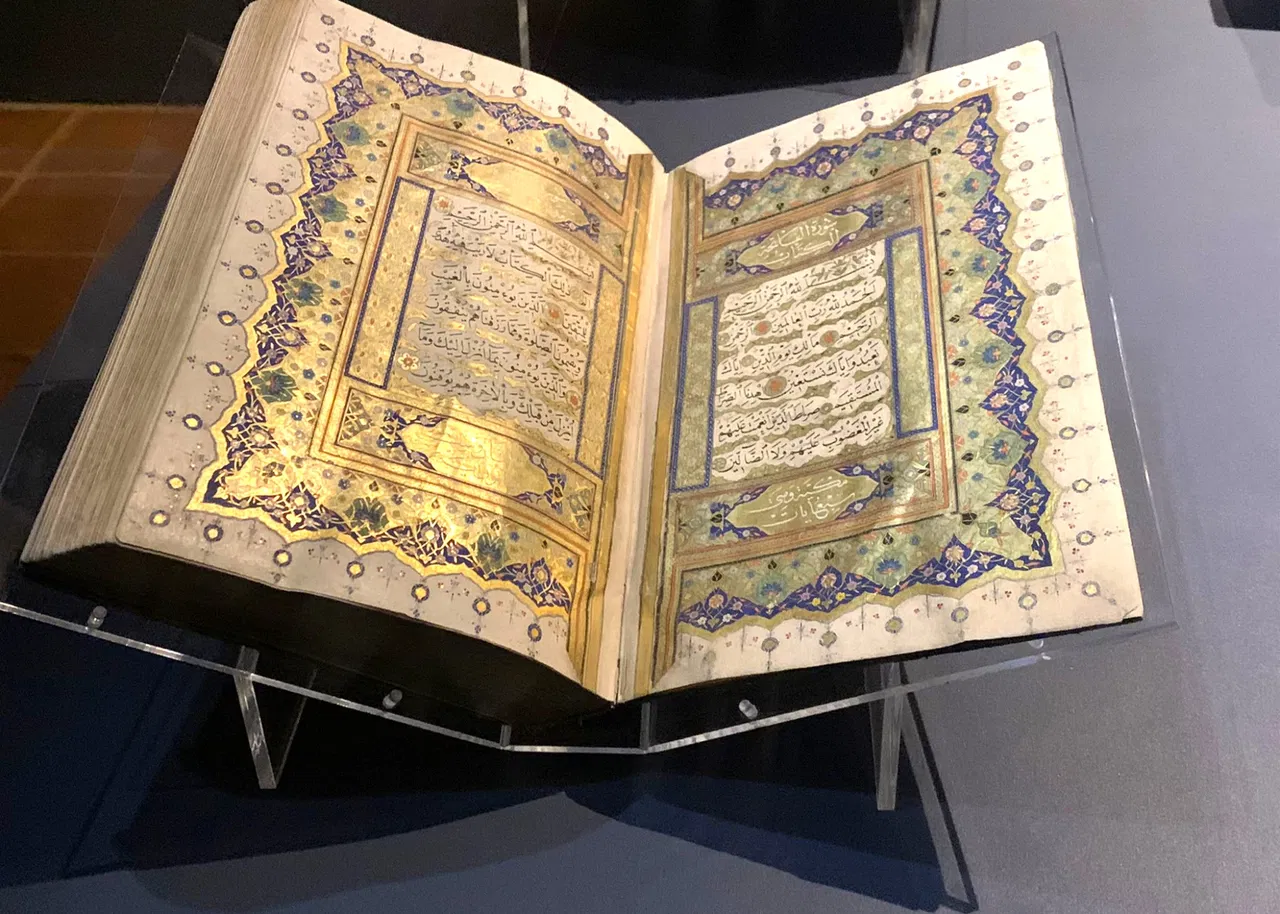 سورة الفاتحة
الكتاب
بِسْمِ اللهِ الرَّحْمٰنِ الرَّحِيمِ
اَلْحَمْدُ لِلّٰهِ رَبِّ الْعَالَمِينَ الرَّحْمٰنِ
الرَّحِيمِ مَالِكِ يَوْمِ الدِّينِ اِيَّاكَ
نَعْبُدُ وَاِيَّاكَ نَسْتَعِينُ اِهْدِنَا الصِّرَاطَ
الْمُسْتَقِيمَ صِرَاطَ الَّذِينَ اَنْعَمْتَ عَلَيْهِمْ
غَيْرِ الْمَغْضُوبِ عَلَيْهِمْ وَلَا الضَّالِّينَ
مكية وهي
سبع آيات
بِسْمِ اللهِ الرَّحْمٰنِ الرَّحِيمِ
الم ذٰلِكَ الْكِتَابُ لَا رَيْبَ فِيهِ هُدًى
لِلْمُتَّقِينَ الَّذِينَ يُؤْمِنُونَ بِالْغَيْبِ
وَيُقِيمُونَ الصَّلٰوةَ وَمِمَّا رَزَقْنَاهُمْ يُنْفِقُونَ
وَالَّذِينَ يُؤْمِنُونَ بِمَا اُنْزِلَ اِلَيْكَ وَمَا
اُنْزِلَ مِنْ قَبْلِكَ وَبِالْاٰخِرَةِ هُمْ يُوقِنُونَ